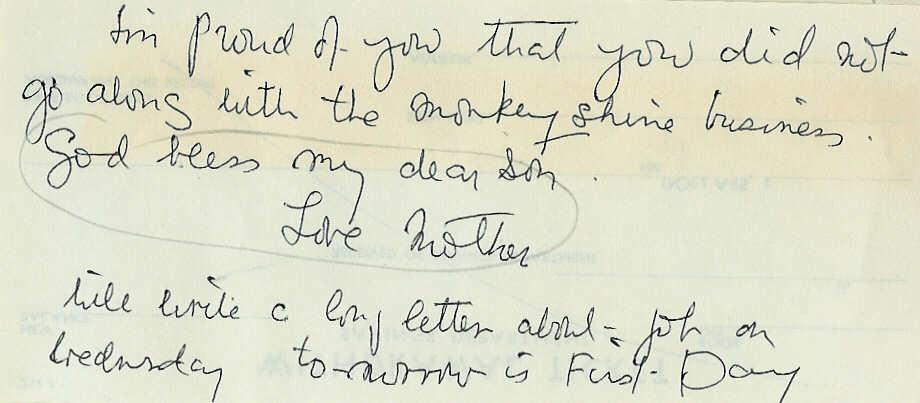 I'm proud of you that you did not
go along with the monkey shine business.
God bless my dear son.
Love Mother
Will write a long letter about job on
Wednesday to-morrow is First Day